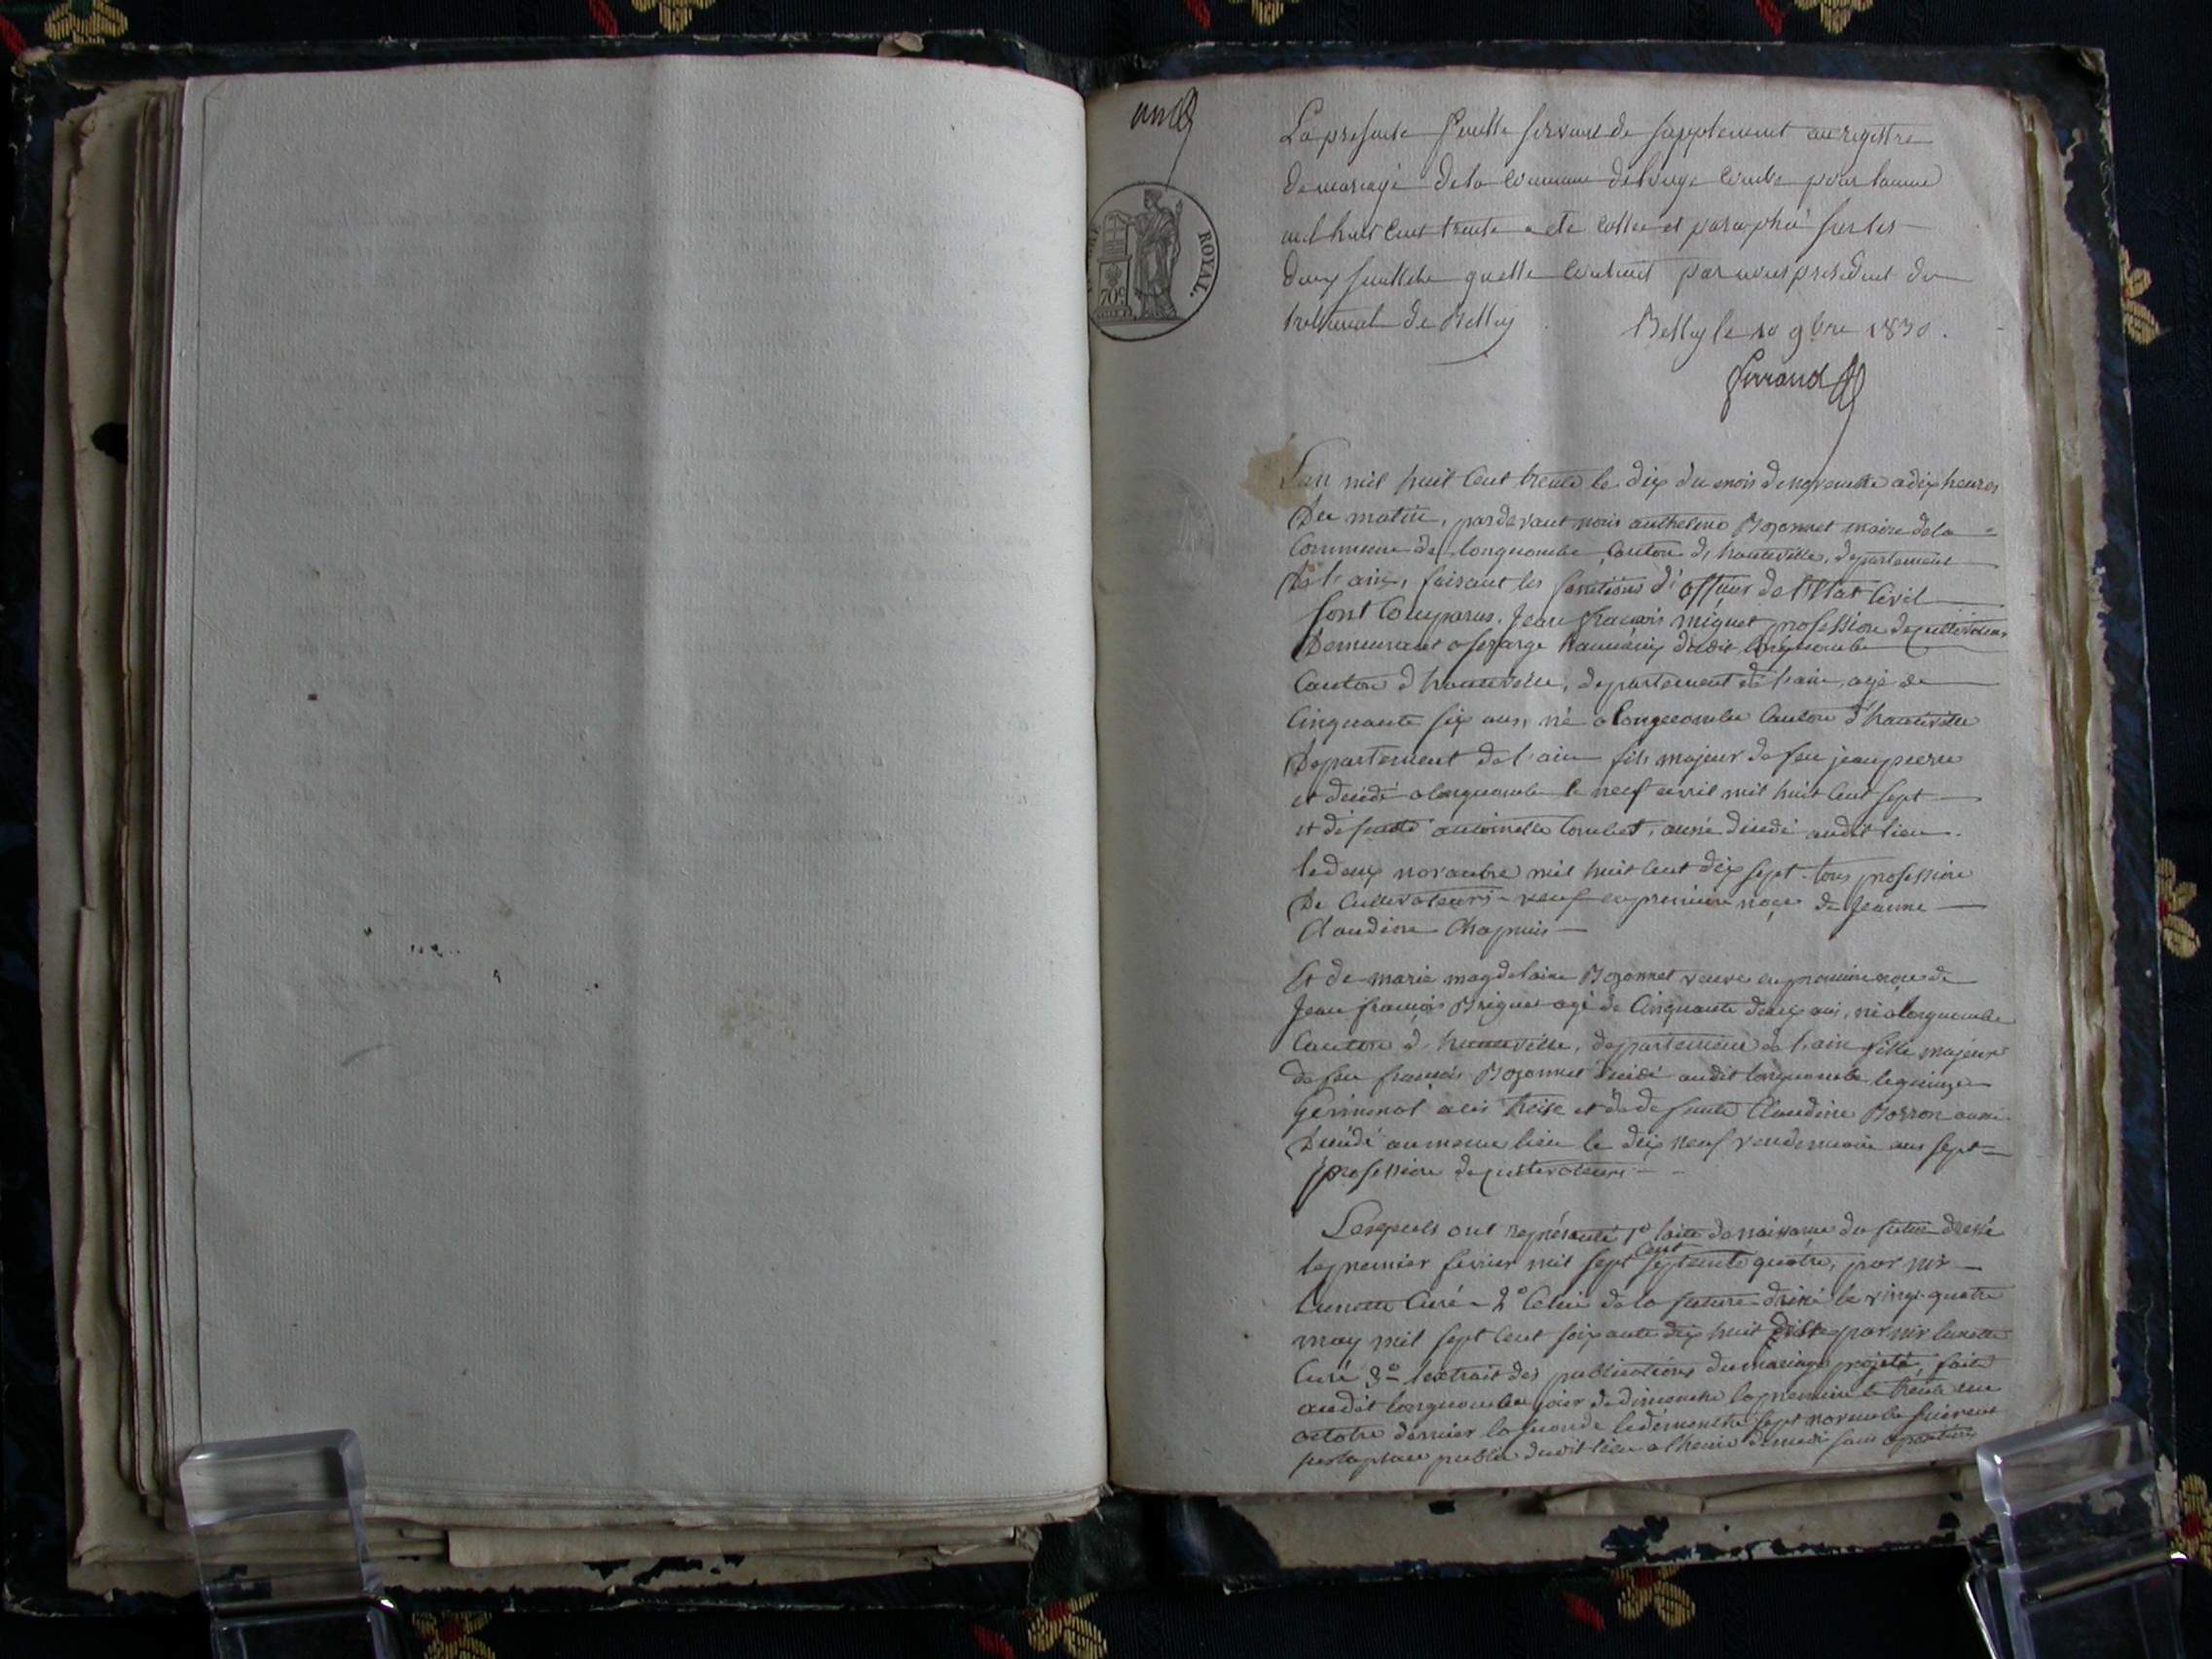 La presente feuille servant de supplement au registre
de mariage de la commune de longe combe pour l'année
mil huit cent trente a été cottée et paraphé sur les
deux feuillets quelle contient par nous president du
tribunal de Belley
Belley le 10 9bre 1830.
ferrand
ROYAL.
70c
L'an mil huit cent trente le dix du mois de novembre a dix heures
du matin, pardevant nous anthelme Bozonnet maire de la
Commune de longecombe Canton d'hauteville, departement
de l'ain, faisant les fonctions d'officier de l'Etat Civil
sont Comparus, Jean françois miguet profession de cultivateur
Demeurant a hameaux dudit longecombe
Canton d'hauteville, departement de l'ain, agé de
Cinquante six ans, né a longecombe Canton d'hauteville
Departement de l'ain fils majeur de feu jean pierre
et décédé a longecombe le neuf avril mil huit Cent sept
et de defunte antoinette Combet, aussi décédé audit lieu.
le deux novembre mil huit Cent dix sept tous profession
de Cultivateurs veuf en premiere noce de Jeanne
Claudine Chapuis
Et de marie magdelaine Bozonnet veuve en premiere noce de
Jean françois agé de Cinquante deux ans, né a longecombe
Canton d'hauteville, departement de l'ain fille majeure
de feu françois Bozonnet décédé audit longecombe le quinze
Germinal an treise et de defunte Claudine Borron aussi
Décédé au meme lieu le dix neuf vendemiaire an sept
profession de cultivateurs
Lesquels ont représenté 1° l'acte de naissance du futur dressé
le premier fevrier mil sept cent septente quatre, par mr
Lunette Curé 2° Celui de la future dressé le vingt quatre
may mil sept Cent soixante dix huit par mr lunette
Curé 3° l'extrait des publications du mariage projeté, faite
audit longecombe jour de dimanche la premiere le trente un
octobre dernier la seconde le dimanche sept novembre
sur la place publie dudit lieu a l'heure de midi sans